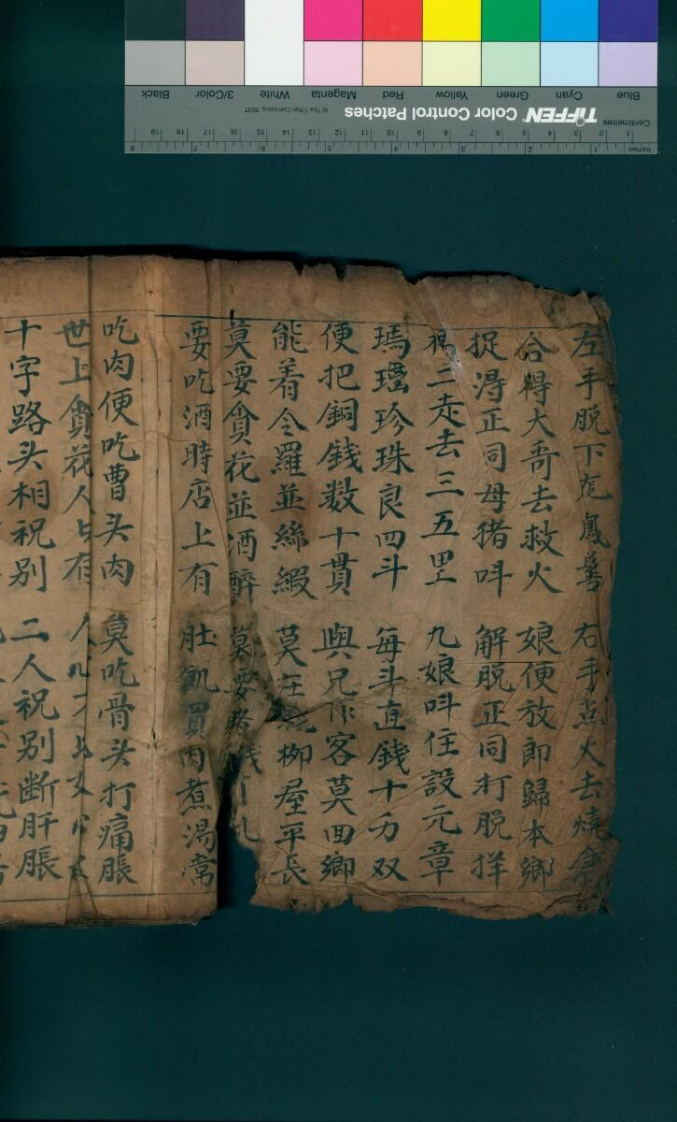 Blue Cyan Green Yellow Red Magenta White 3/Color Black
TIFFEN Color Control Patches © The Tiffen Company 2007
Centimetres 1 2 3 4 5 6 7 8 9 10 11 12 13 14 15 16 17 18 19
Inches 1 2 3 4 5 6 7 8
左手脫下龙鳳 右手点火去燒倉
合得大哥去救火 娘便放郎歸本鄉
捉淂正同母猪呌 解脫正同打脫挷
二走去三五里 九娘呌住設元章
瑪瑙珍珠良四斗 每斗直錢十万双
便把銅錢数十貫 與兄作客莫回鄉
能着令羅並絲緞 莫在 柳屋平長
莫要貪花並酒醉 莫要
要吃酒時店上有 肚飢買肉煮湯常
吃肉便吃曹头肉 莫吃骨头打痛脹
世上貪花人占有
十字路头相祝别 二人祝别断肝腸